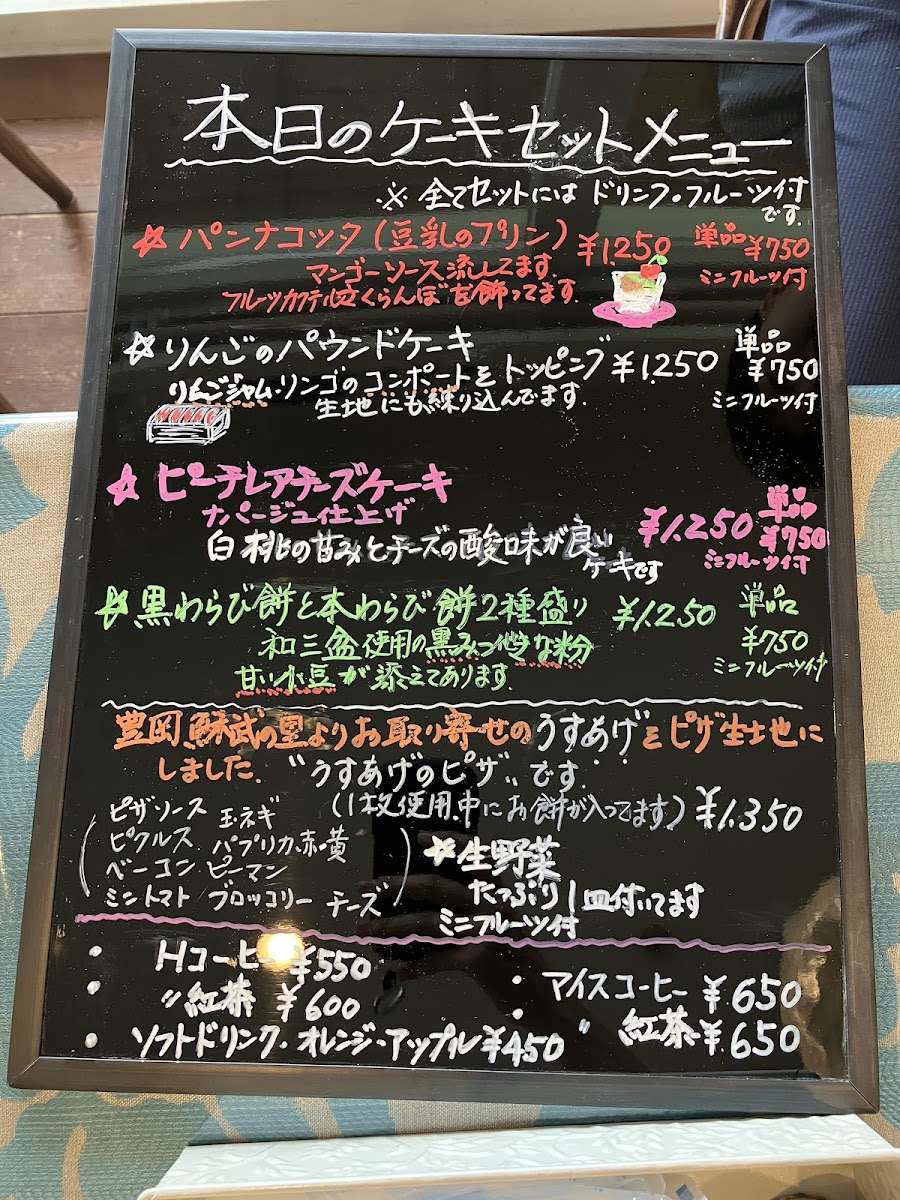 本日のケーキセットメニュー
※ 全てセットには ドリンク・フルーツ付
です.
☆ パンナコッタ(豆乳のプリン) ¥1250 単品 ¥750
マンゴーソース流してます. ミニフルーツ付
フルーツカクテル さくらんぼを飾ってます.
☆ りんごのパウンドケーキ 単品
りんごジャム・リンゴのコンポートをトッピング ¥1,250 ¥750
生地にも練り込んでます. ミニフルーツ付
☆ ピーチレアチーズケーキ 単品
ナパージュ仕上げ ¥1.250 ¥750
白桃の甘みとチーズの酸味が良い ミニフルーツ付
ケーキです
☆ 黒わらび餅と本わらび餅2種盛り ¥1250 単品
和三盆使用の黒みつときな粉 ¥750
甘い小豆が添えてあります. ミニフルーツ付
豊岡 の里よりお取り寄せのうすあげをピザ生地に
しました. "うすあげのピザ"です.
(1枚使用.中にお餅が入ってます) ¥1.350
ピザソース 玉ネギ
ピクルス パプリカ.赤・黄
ベーコン ピーマン
ミニトマト ブロッコリー チーズ
☆ 生野菜
たっぷり1皿付いてます
ミニフルーツ付
・ Hコーヒー ¥550
・ 〃 紅茶 ¥600
・ アイスコーヒー ¥650
・ 〃 紅茶 ¥.650
・ ソフトドリンク・オレンジ・アップル ¥450